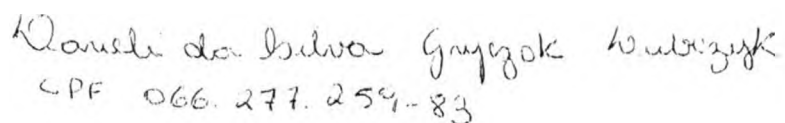 Danieli da Silva Gryczok Dubrzyk
CPF 066.277.259-83